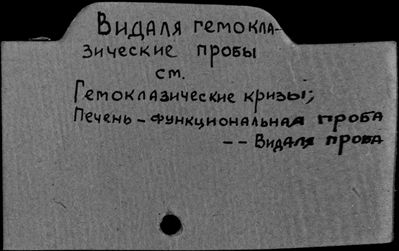 Видаля гемокла-
зические пробы
см.
Гемоклазические кризы;
Печень - функциональная проба
-- Видаля проба